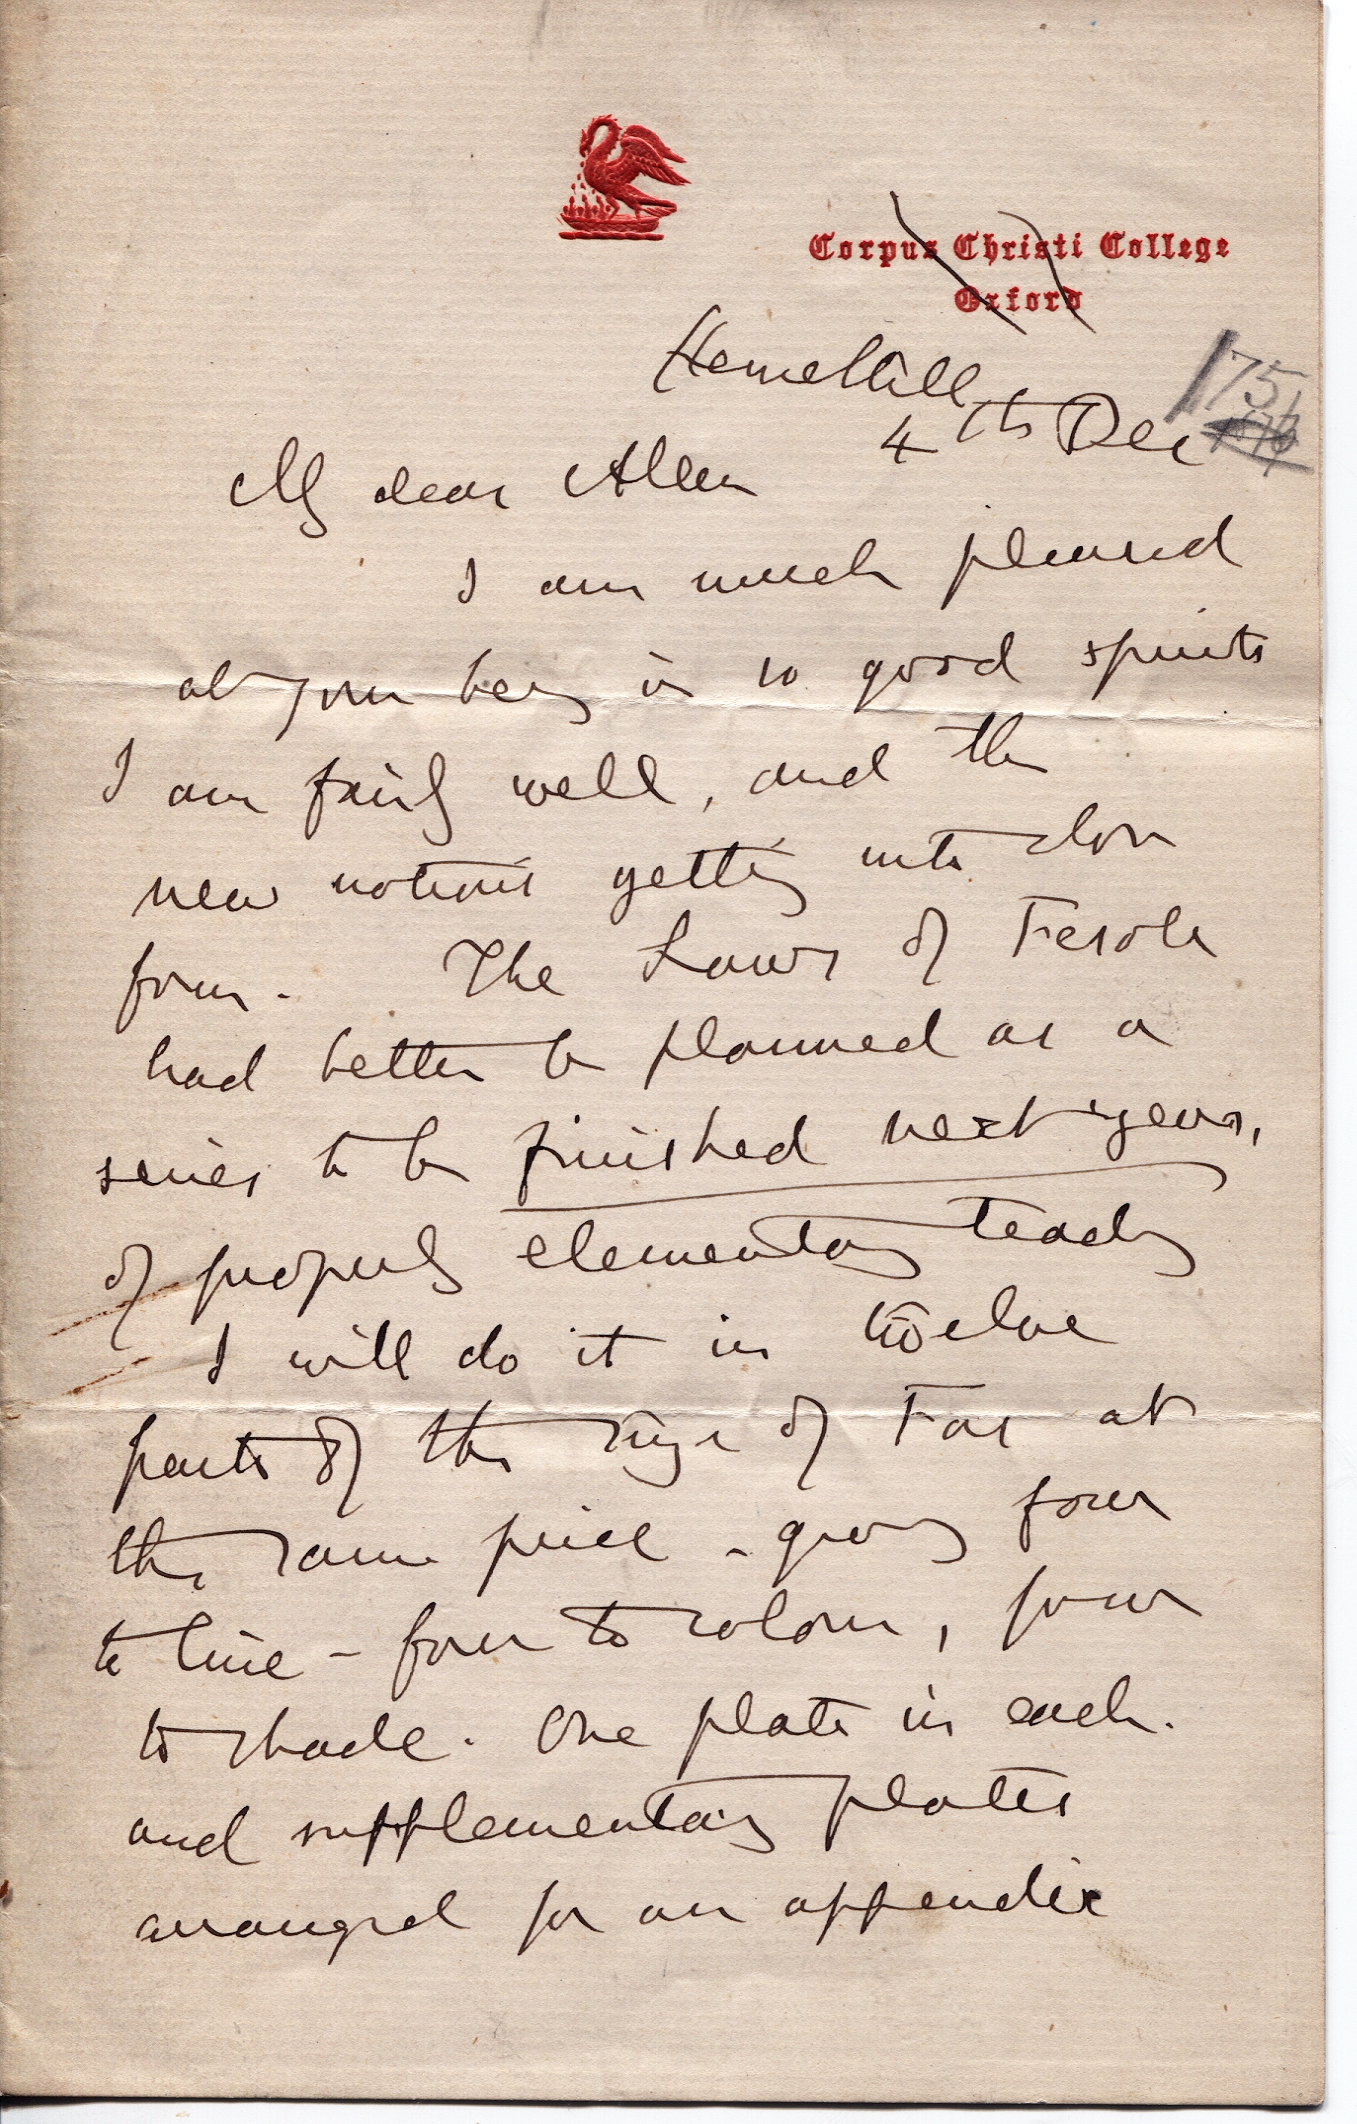 Corpus Christi College
Oxford
Herne Hill
4th Dec
/75/
My dear Allen
I am much pleased
at your being in so good spirits
I am fairly well, and the
new notions getting into
form. The Laws of Fesole
had better be planned as a
series to be finished next year,
of properly elementary teaching
I will do it in twelve
parts of the size of Fors at
the same price - giving four
to line - four to colour, four
to shade. One plate in each.
and supplementary plates
arranged for an appendix